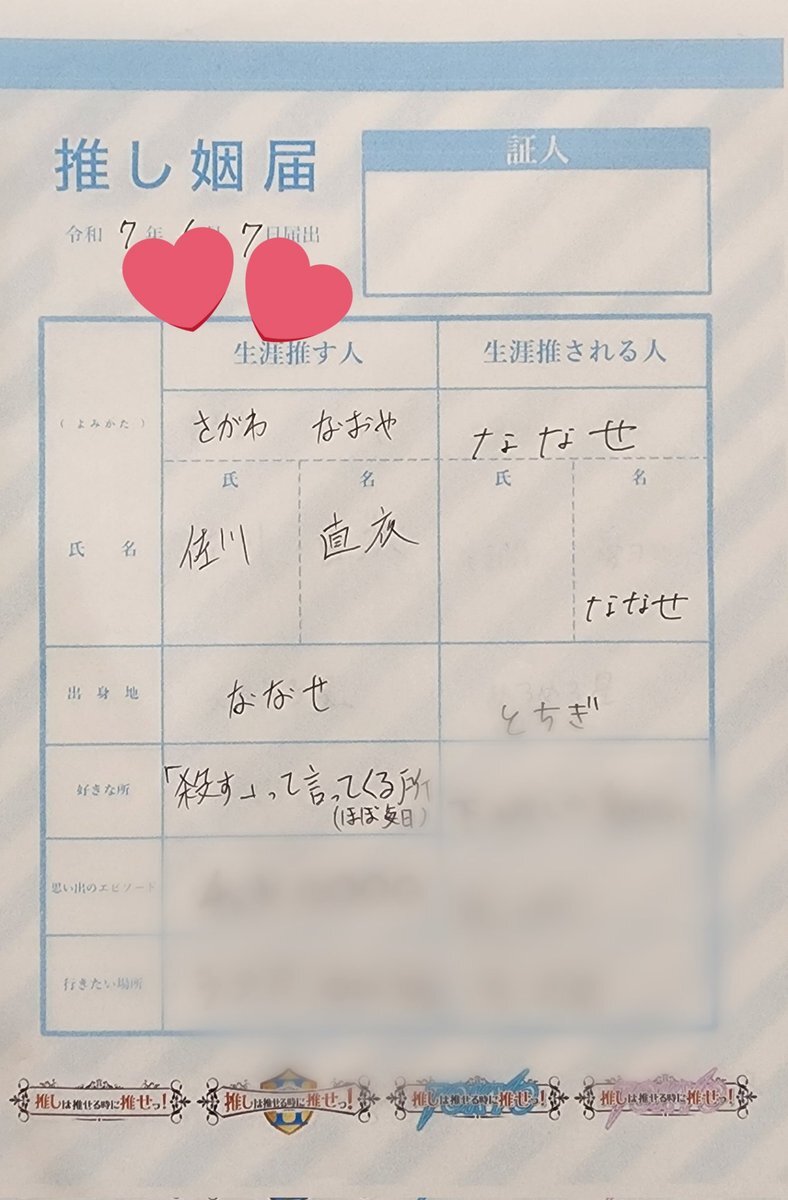 推し姻届
証人
令和 7 年 日届出
7
生涯推す人 生涯推される人
(よみかた) さがわ なおや ななせ
氏 名 氏 名
氏 名 佐川 直夜 ななせ
出身地 ななせ とちぎ
好きな所 「殺す」って言ってくる所
(ほぼ毎日)
思い出のエピソード
行きたい場所
推しは推せる時に推せっ! 推しは推せる時に推せっ! 推しは推せる時に推せっ! 推しは推せる時に推せっ!